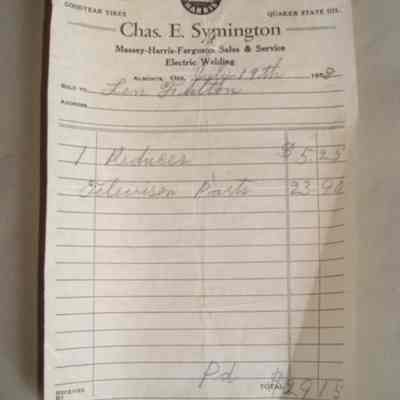 HARRIS
GOODYEAR TIRES QUAKER STATE OIL
Chas. E. Symington
Massey-Harris-Ferguson Sales & Service
Electric Welding
ALMONTE, Ont. July 19th 1958
SOLD TO Len Fulton
ADDRESS
1 Reducer $5.25
Television Parts 23.90
Pd TOTAL $29.15
RECEIVED
BY